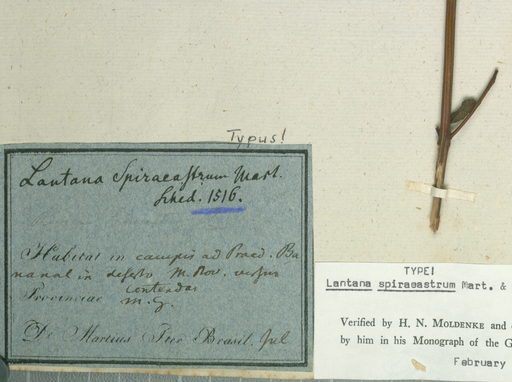 Typus!
Lantana Spiraeastrum Mart.
Sched. 1516.
Habitat in campis ad Praed. Ba
nanal in deserto M. Nov. versus
Contendas
Provinciae M. G.
Dr Martius Iter Brasil. Jul
TYPE!
Lantana spiraeastrum Mart. &
Verified by H. N. MOLDENKE and
by him in his Monograph of the G
February